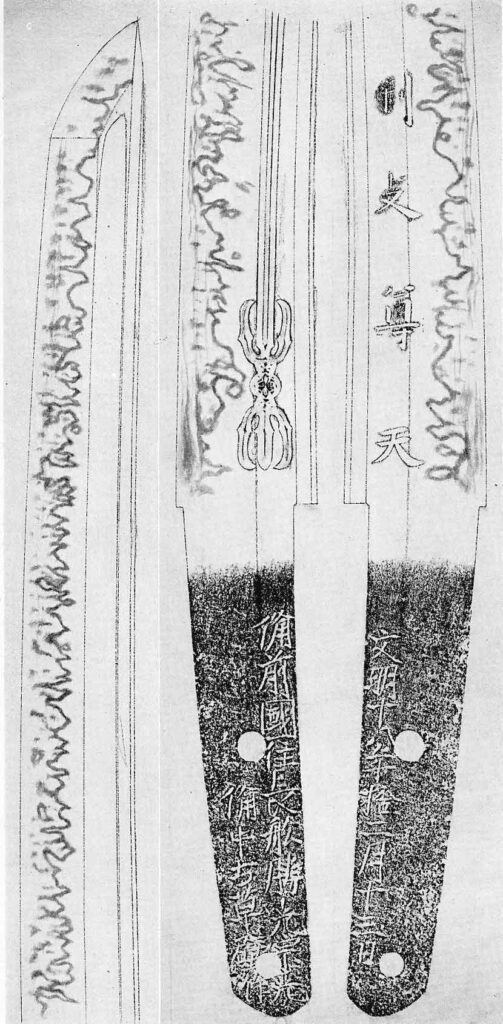 利支尊天
文明十八年二月十三日
備前國住長船勝光宗光
備中草壁